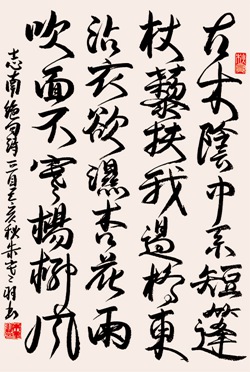 古木陰中系短篷
杖藜扶我過橋東
沾衣欲濕杏花雨
吹面不寒楊柳風
志南絕句詩亥秋朱羽書